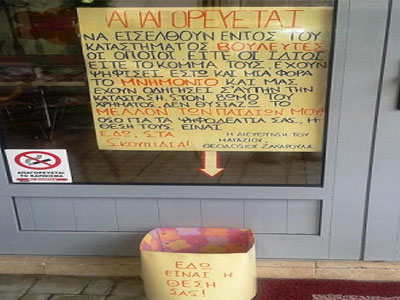 ΑΠΑΓΟΡΕΥΕΤΑΙ
ΝΑ ΕΙΣΕΛΘΟΥΝ ΕΝΤΟΣ ΤΟΥ
ΚΑΤΑΣΤΗΜΑΤΟΣ ΒΟΥΛΕΥΤΕΣ
ΟΙ ΟΠΟΙΟΙ ΕΙΤΕ ΟΙ ΙΔΙΟΙ
ΕΙΤΕ ΤΟ ΚΟΜΜΑ ΤΟΥΣ ΕΧΟΥΝ
ΨΗΦΙΣΕΙ ΕΣΤΩ ΚΑΙ ΜΙΑ ΦΟΡΑ
ΤΟ ΜΝΗΜΟΝΙΟ ΚΑΙ ΜΑΣ
ΕΧΟΥΝ ΟΔΗΓΗΣΕΙ Σ'ΑΥΤΗΝ ΤΗΝ
ΚΑΤΑΣΤΑΣΗ. ΣΤΟΝ ΒΩΜΟ ΤΟΥ
ΧΡΗΜΑΤΟΣ ΔΕΝ ΘΥΣΙΑΖΩ ΤΟ
ΜΕΛΛΟΝ ΤΩΝ ΠΑΙΔΙΩΝ ΜΟΥ
ΟΣΟ ΓΙΑ ΤΑ ΨΗΦΟΔΕΛΤΙΑ ΣΑΣ, Η
ΘΕΣΗ ΤΟΥΣ ΕΙΝΑΙ
ΕΔΩ, ΣΤΑ
ΣΚΟΥΠΙΔΙΑ!
Η ΔΙΕΥΘΥΝΣΗ ΤΟΥ
ΜΑΓΑΖΙΟΥ
ΘΕΟΔΟΣΙΟΥ ΖΑΧΑΡΟΥΛΑ
ΑΠΑΓΟΡΕΥΕΤΑΙ
ΤΟ ΚΑΠΝΙΣΜΑ
ΕΔΩ
ΕΙΝΑΙ Η
ΘΕΣΗ
ΣΑΣ!